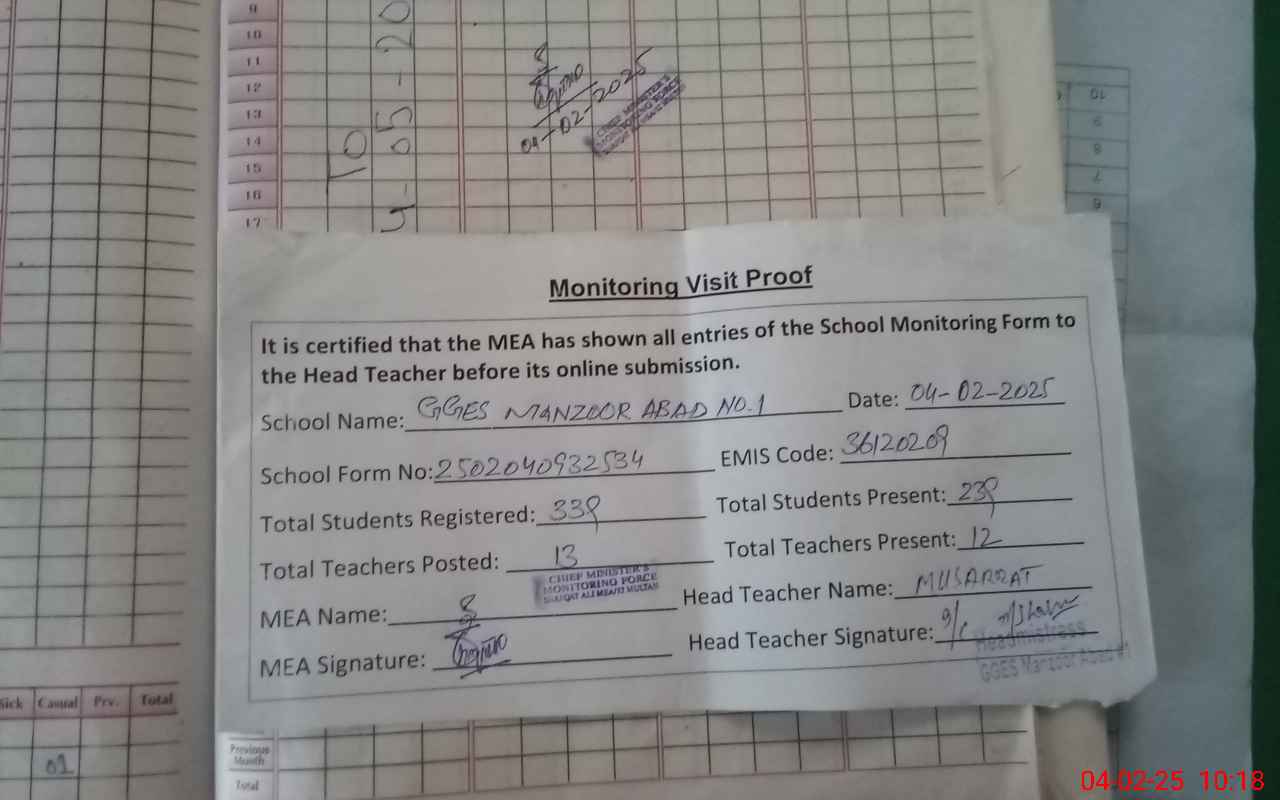 9
10
11
12
13
14
15
16
17
04-02-2025
CHIEF MINISTER'S
MONITORING FORCE
10
9
8
7
6
Monitoring Visit Proof
It is certified that the MEA has shown all entries of the School Monitoring Form to
the Head Teacher before its online submission.
School Name: GGES MANZOOR ABAD NO.1 Date: 04-02-2025
School Form No: 2502040932534 EMIS Code: 36120209
Total Students Registered: 339 Total Students Present: 239
Total Teachers Posted: 13 Total Teachers Present: 12
CHIEF MINISTER'S
MONITORING FORCE
SHAFQAT ALI MEA/17 MULTAN
MEA Name: Head Teacher Name: MUSARRAT
MEA Signature: Head Teacher Signature:
Headmistress
GGES Manzoor Abad #1
Sick Casual Prv. Total
01
Previous
Month
Total
04-02-25 10:18